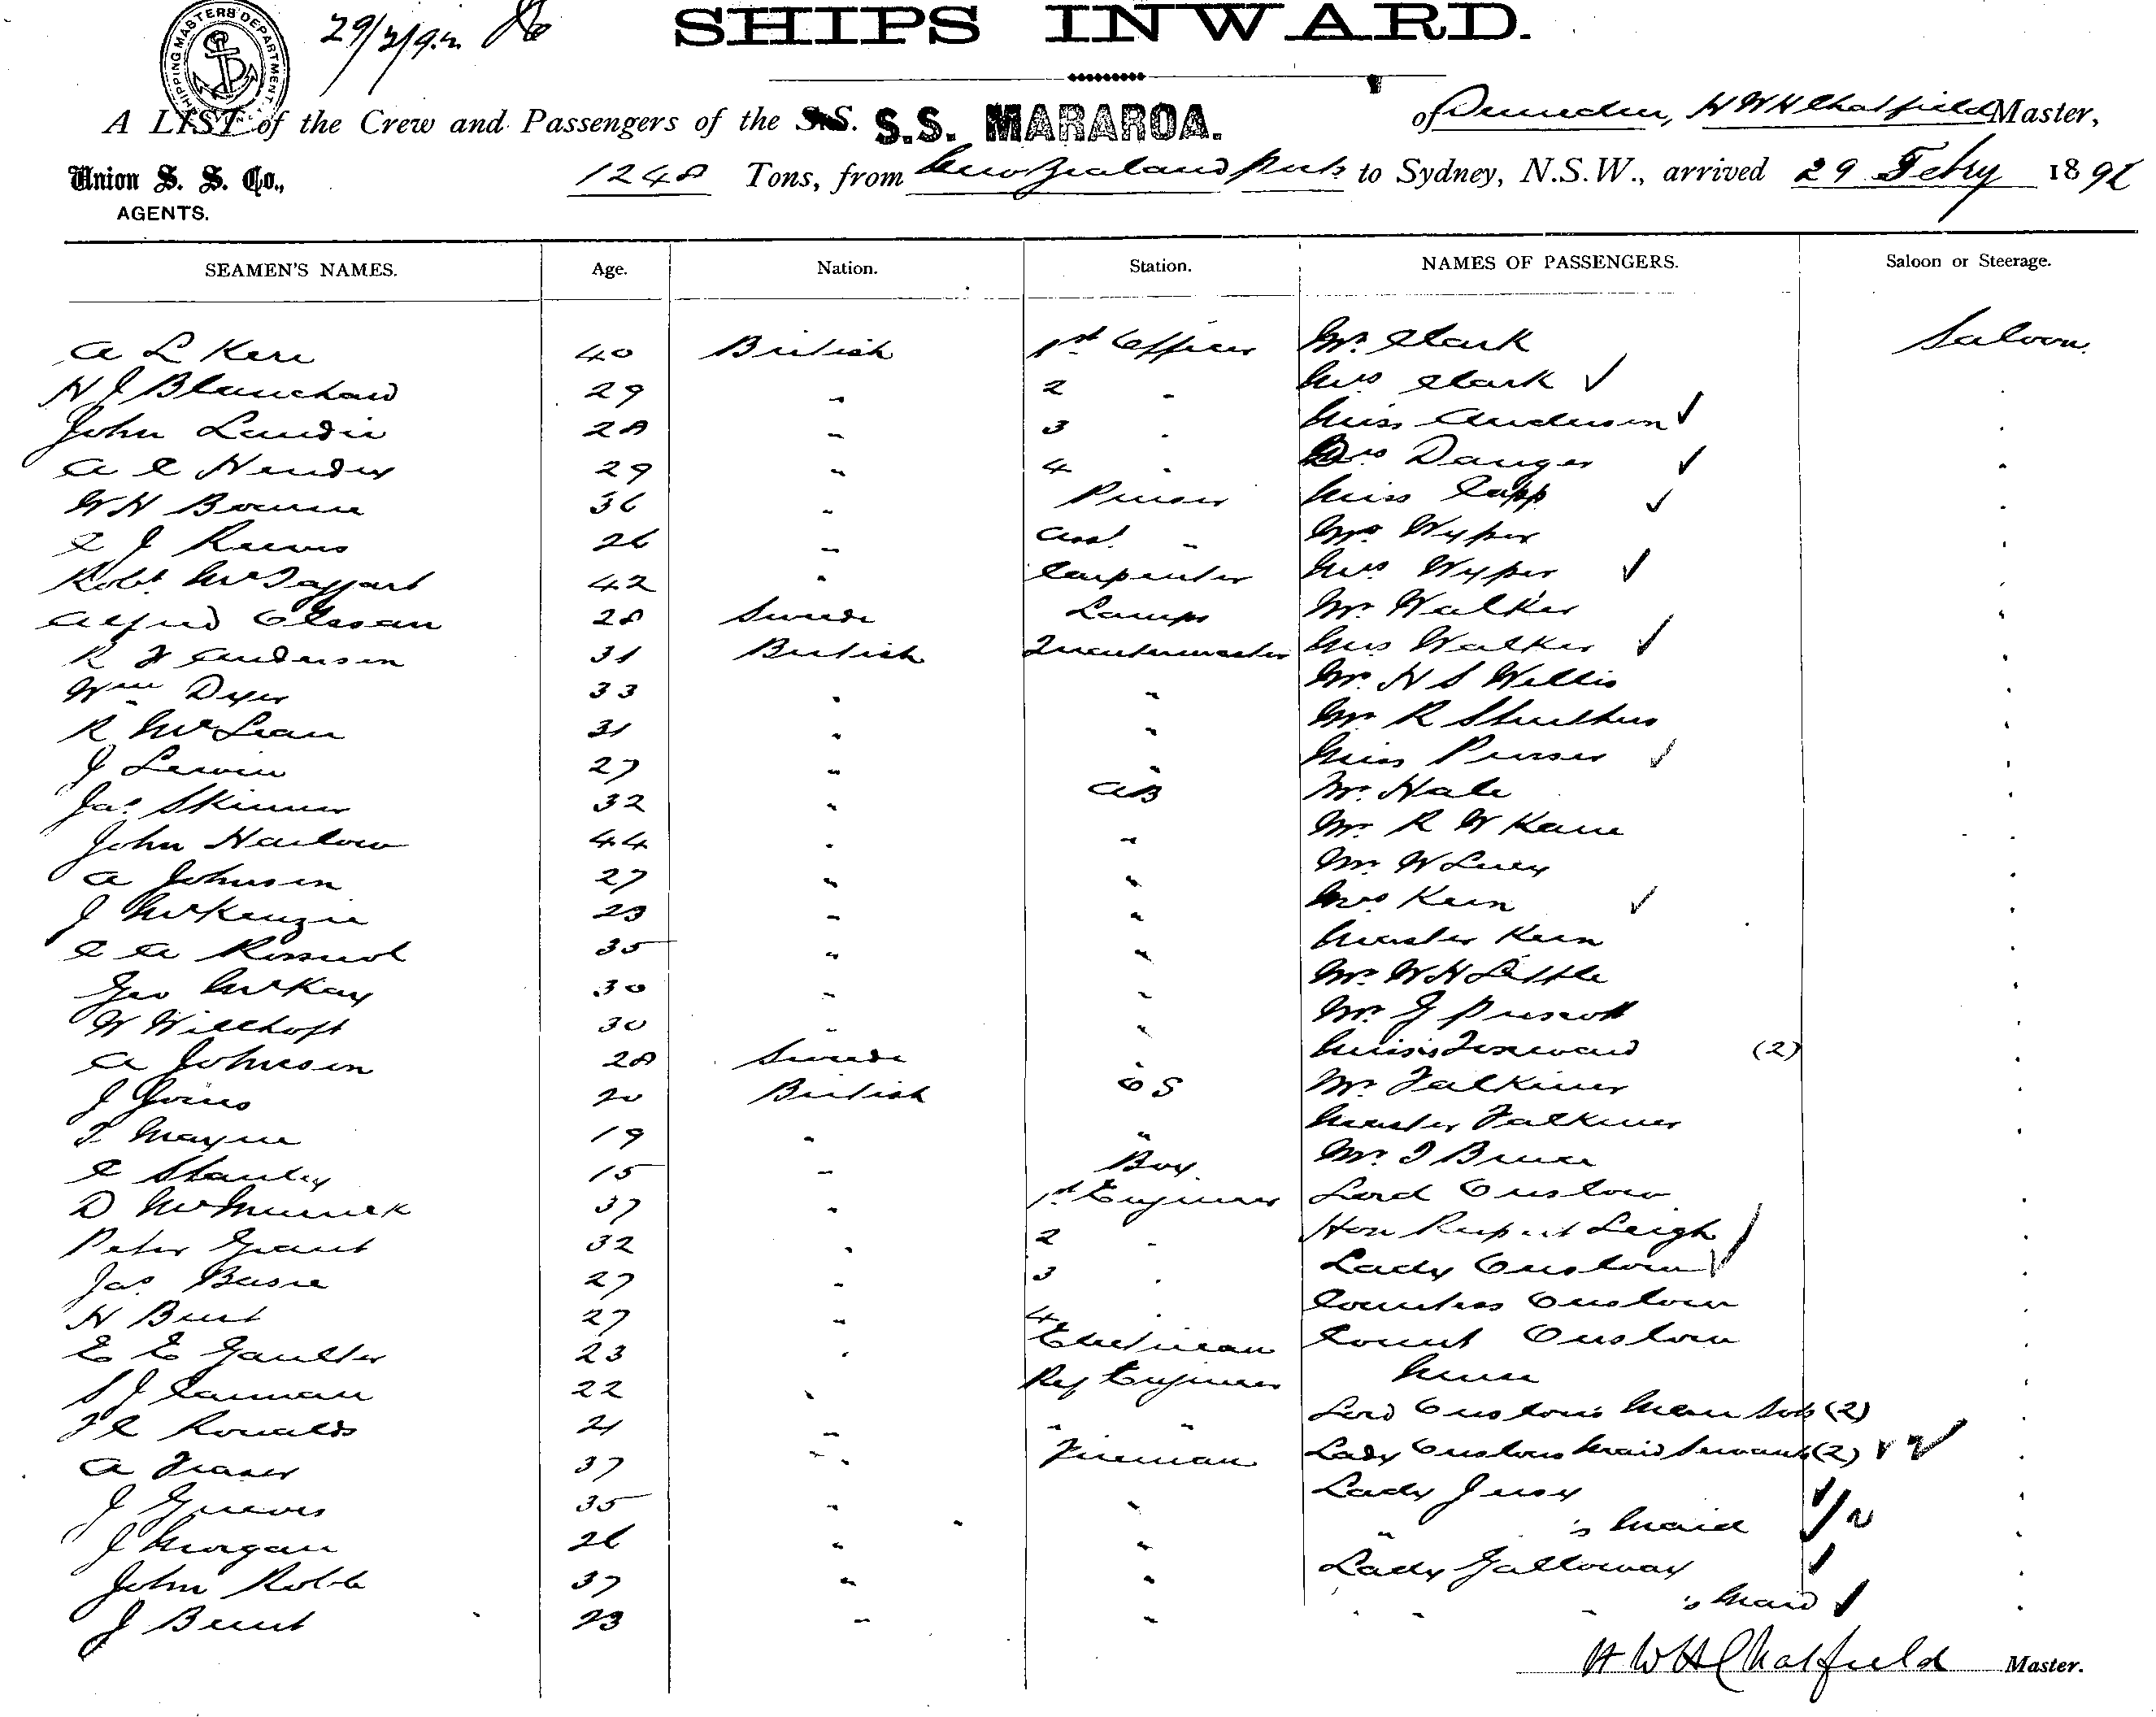 SHIPPING MASTER'S DEPARTMENT
29/2/92
SHIPS INWARD.
A LIST of the Crew and Passengers of the S.S. S.S. MARAROA. of Dunedin, H W H Chatfield Master,
Union S. S. Co., 1248 Tons, from New Zealand Ports to Sydney, N.S.W., arrived 29 Febry 1892
AGENTS.
SEAMEN'S NAMES. Age. Nation. Station. NAMES OF PASSENGERS. Saloon or Steerage.
A L Kerr 40 British 1st Officer Mr. Clark Saloon.
H J Blanchard 29 " 2 " Mrs Clark ✓
John Laudie 28 " 3 " Miss Anderson ✓
A C Hender 29 " 4 " Mrs Danger ✓
W H Bourne 36 " Purser Miss Capp ✓
C J Reeves 26 " Asst. " Mr Wyper
Robt McTaggart 42 " Carpenter Mrs Wyper ✓
Alfred Olssan 28 Swede Lamps Mr. Walker
R W Anderson 31 British Quartermaster Mrs Walker ✓
Wm Dyer 33 " " Mr. H S Willis
R McLean 31 " " Mr R Struthers
J Lewin 27 " " Miss Purser ✓
Jas. Skinner 32 " AB Mr. Hale
John Harlow 44 " " Mr. R W Kane
A Johnson 27 " " Mr. W Lucy
J McKenzie 23 " " Mrs Kern ✓
C A 35 " " Master Kern
Geo McKay 30 " " Mr. W H Little
W Willhoft 30 " " Mr. J Prescott
A Johnson 28 Swede " Misses (2)
J Jones 20 British O S Mr. Falkiner
T. Mayne 19 " " Master Falkiner
C Stanley 15 " Boy Mr. J Bruce
D McMurrick 37 " 1st Engineer Lord Onslow
Peter Grant 32 " 2 " Hon Rupert Leigh ✓
Jas. 27 " 3 " Lady Onslow ✓
H Burt 27 " 4 " Countess Onslow
E E Gaulter 23 " Electrician Count Onslow
S J Carman 22 " Ref Engineer Nurse
F C Ronalds 21 " " " Lord Onslow's Man Svts (2)
A Fraser 37 " Fireman Lady Onslows Maid Servants (2) ✓ ✓
J Greeves 35 " " Lady Jersey ✓
J Morgan 26 " " " 's Maid ✓
John Robb 37 " " Lady Galloway ✓
J Brunt 23 " " " " 's Maid ✓
H W H Chatfield Master.